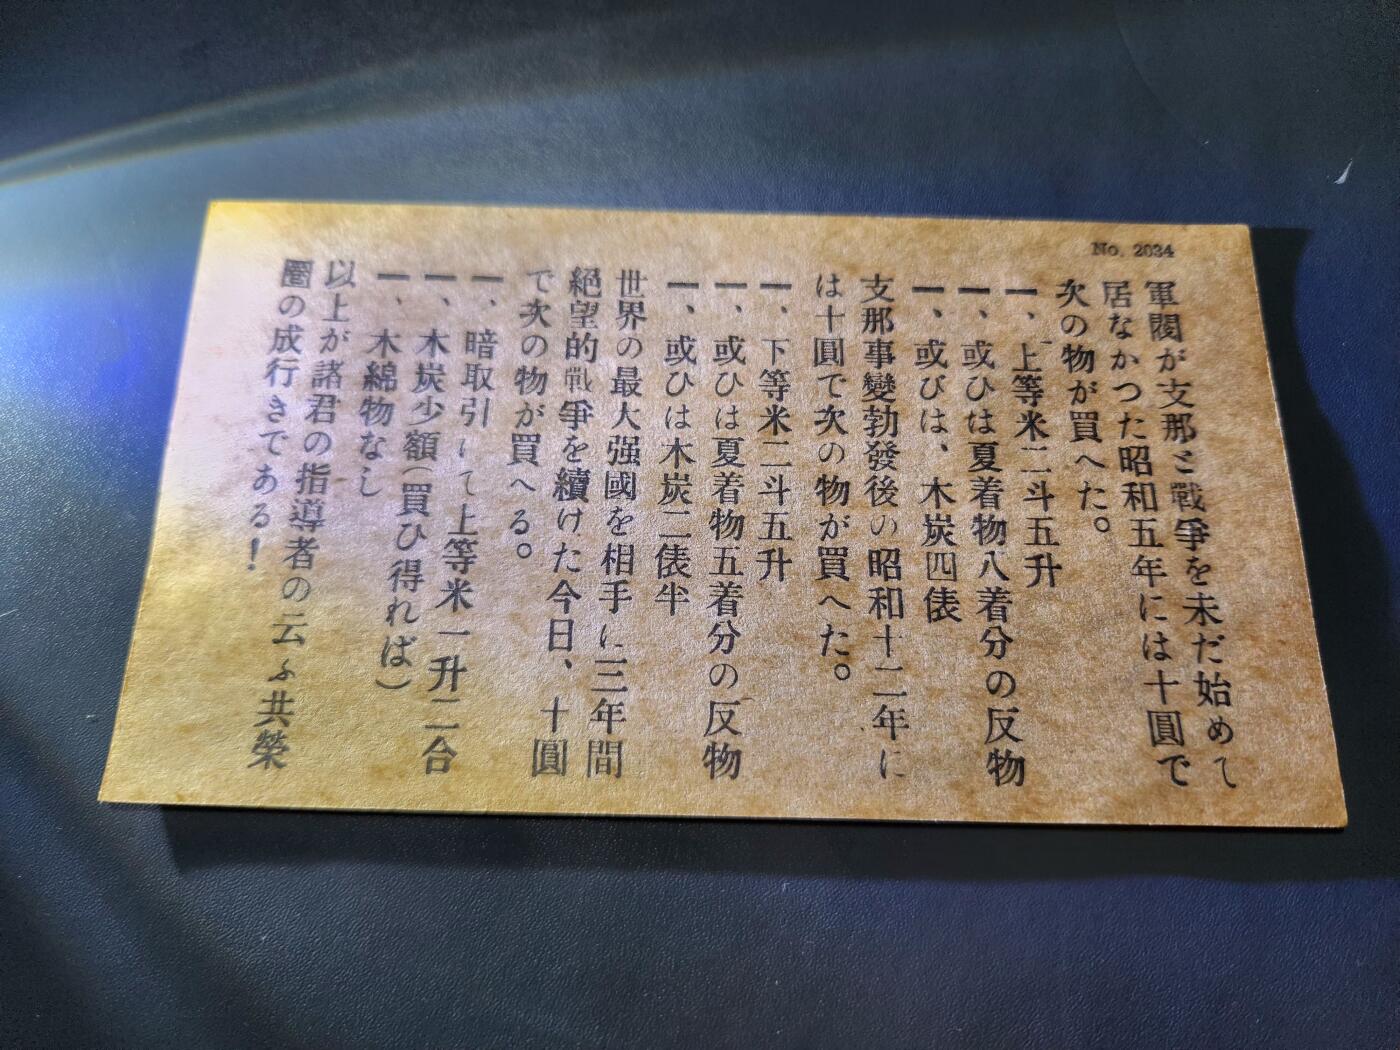 No. 2034
軍閥が支那と戰爭を未だ始めて
居なかつた昭和五年には十圓で
次の物が買へた。
一、上等米二斗五升
一、或ひは夏着物八着分の反物
一、或びは、木炭四俵
支那事變勃發後の昭和十二年に
は十圓で次の物が買へた。
一、下等米二斗五升
一、或ひは夏着物五着分の反物
一、或ひは木炭二俵半
世界の最大强國を相手に三年間
絕望的戰爭を續けた今日、十圓
で次の物が買へる。
一、暗取引にて上等米一升二合
一、木炭少額(買ひ得れば)
一、木綿物なし
以上が諸君の指導者の云ふ共榮
圈の成行きである!